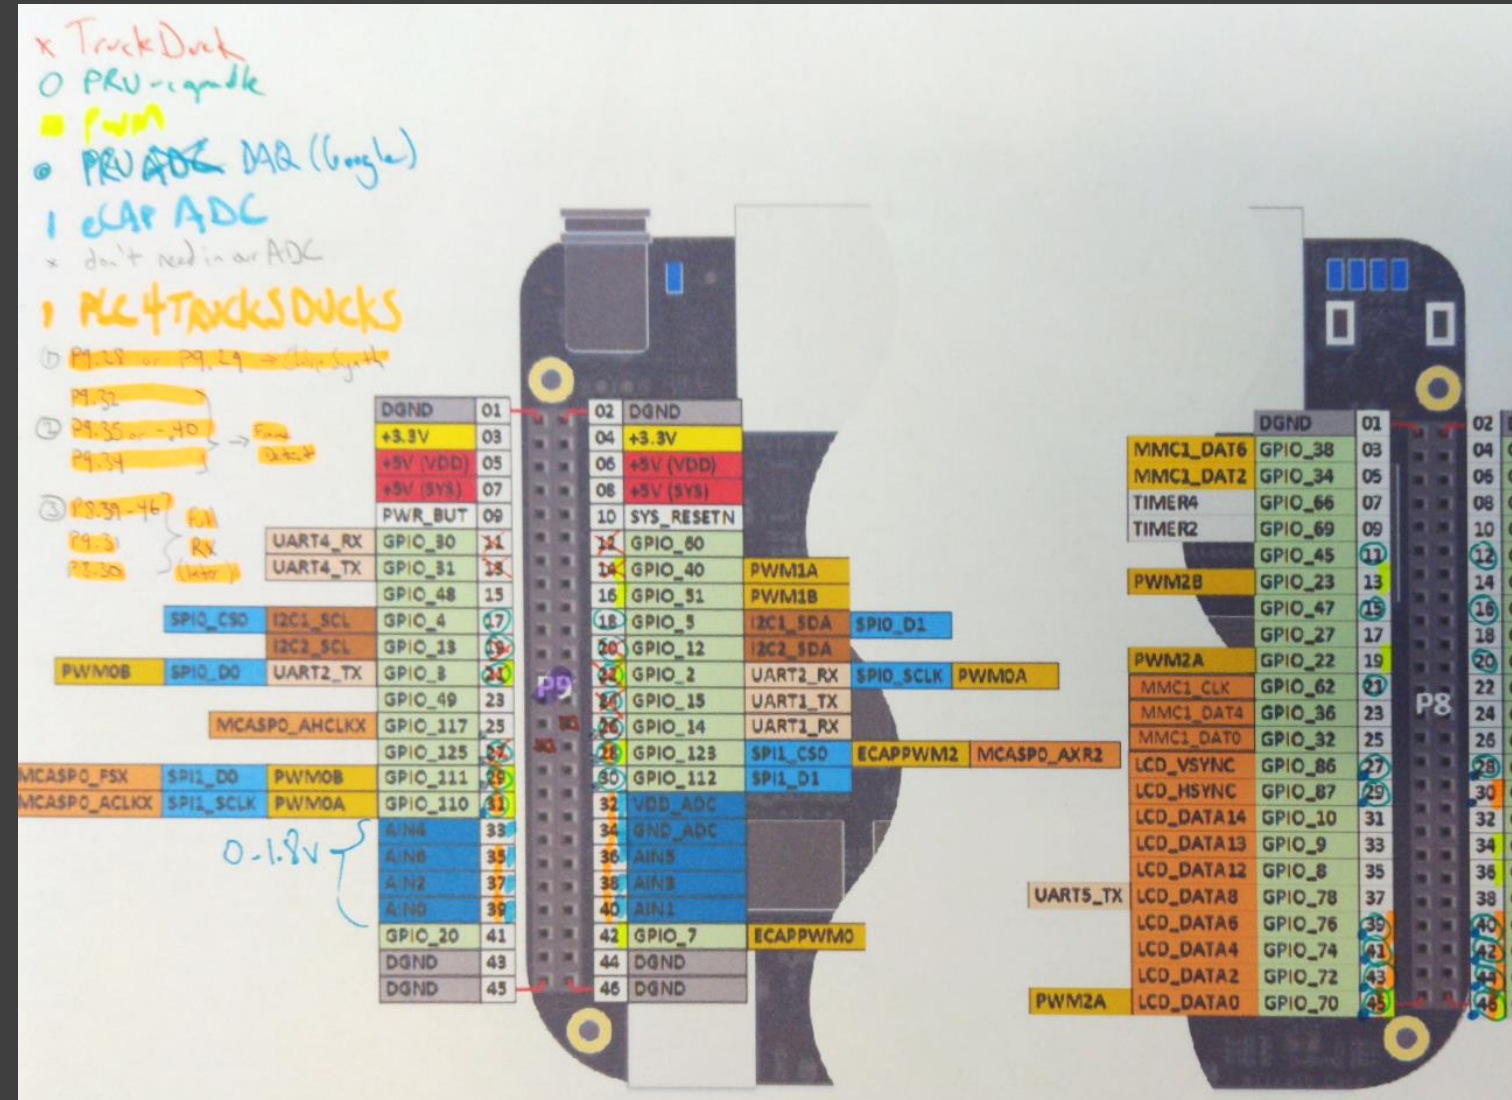 x TruckDuck
O PRU-capable
PWM
PRU ADC DAQ (Google)
eCAP ADC
x don't need in our ADC
PLC4TRUCKSDUCKS
① P9.28 or P9.29 → Chirp Synth
P9.32
② P9.35 or -.40 → Frame
P9.34 Detect
③ P8.39-46 Full
P9.31 RX
P8.30 (later)
0-1.8v
DGND 01 02 DGND
+3.3V 03 04 +3.3V
+5V (VDD) 05 06 +5V (VDD)
+5V (SYS) 07 08 +5V (SYS)
PWR_BUT 09 10 SYS_RESETN
UART4_RX GPIO_30 11 12 GPIO_60
UART4_TX GPIO_31 13 14 GPIO_40 PWM1A
GPIO_48 15 16 GPIO_51 PWM1B
SPI0_CS0 I2C1_SCL GPIO_4 17 18 GPIO_5 I2C1_SDA SPI0_D1
I2C2_SCL GPIO_13 19 20 GPIO_12 I2C2_SDA
PWM0B SPI0_D0 UART2_TX GPIO_3 21 22 GPIO_2 UART2_RX SPI0_SCLK PWM0A
GPIO_49 23 24 GPIO_15 UART1_TX
MCASP0_AHCLKX GPIO_117 25 26 GPIO_14 UART1_RX
GPIO_125 27 28 GPIO_123 SPI1_CS0 ECAPPWM2 MCASP0_AXR2
MCASP0_FSX SPI1_D0 PWM0B GPIO_111 29 30 GPIO_112 SPI1_D1
MCASP0_ACLKX SPI1_SCLK PWM0A GPIO_110 31 32 VDD_ADC
AIN4 33 34 GND_ADC
AIN6 35 36 AIN5
AIN2 37 38 AIN3
AIN0 39 40 AIN1
GPIO_20 41 42 GPIO_7 ECAPPWM0
DGND 43 44 DGND
DGND 45 46 DGND
P9
DGND 01 02
MMC1_DAT6 GPIO_38 03 04
MMC1_DAT2 GPIO_34 05 06
TIMER4 GPIO_66 07 08
TIMER2 GPIO_69 09 10
GPIO_45 11 12
PWM2B GPIO_23 13 14
GPIO_47 15 16
GPIO_27 17 18
PWM2A GPIO_22 19 20
MMC1_CLK GPIO_62 21 22
MMC1_DAT4 GPIO_36 23 24
MMC1_DAT0 GPIO_32 25 26
LCD_VSYNC GPIO_86 27 28
LCD_HSYNC GPIO_87 29 30
LCD_DATA14 GPIO_10 31 32
LCD_DATA13 GPIO_9 33 34
LCD_DATA12 GPIO_8 35 36
UART5_TX LCD_DATA8 GPIO_78 37 38
LCD_DATA6 GPIO_76 39 40
LCD_DATA4 GPIO_74 41 42
LCD_DATA2 GPIO_72 43 44
PWM2A LCD_DATA0 GPIO_70 45 46
P8